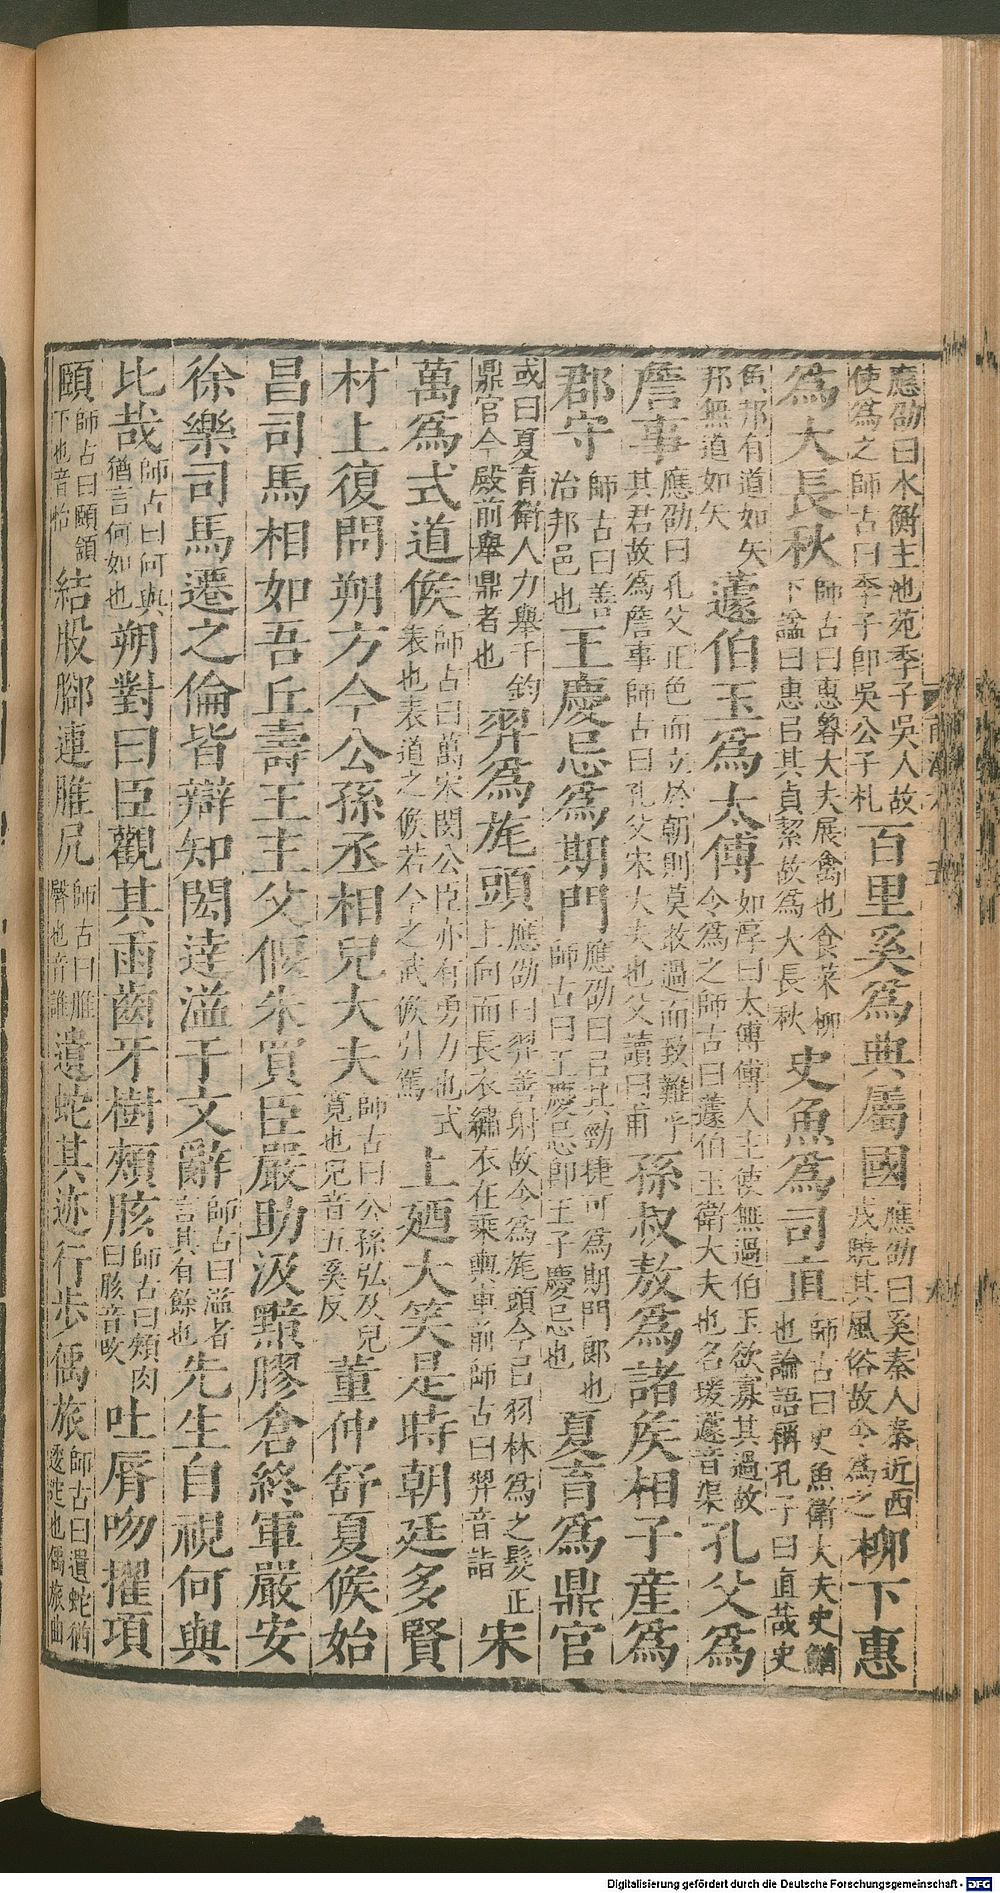 應劭曰水衡主池苑季子吳人故使爲之師古曰季子卽吳公子札百里奚爲典屬國應劭曰奚秦人秦近西戎曉其風俗故令爲之柳下惠
爲大長秋師古曰惠魯大夫展禽也食菜柳下謚曰惠㠯其貞絜故爲大長秋史魚爲司直師古曰史魚衛大夫史鰌也論語稱孔子曰直哉史
魚邦有道如矢邦無道如矢蘧伯玉爲太傅如淳曰太傅傅人主使無過伯玉欲寡其過故令爲之師古曰蘧伯玉衛大夫也名瑗蘧音渠孔父爲
詹事應劭曰孔父正色而立於朝則莫敢過而致難乎其君故爲詹事師古曰孔父宋大夫也父讀曰甫孫叔敖爲諸矦相子產爲
郡守師古曰善治邦邑也王慶忌爲期門應劭曰㠯其勁捷可爲期門郞也師古曰王慶忌卽王子慶忌也夏育爲鼎官
或曰夏育衛人力舉千鈞鼎官今殿前舉鼎者也羿爲旄頭應劭曰羿善射故令爲旄頭今㠯羽林爲之髮正上向而長衣繡衣在乘輿車前師古曰羿音詣宋
萬爲式道候師古曰萬宋閔公臣亦有勇力也式表也表道之候若今之武候引駕上廼大笑是時朝廷多賢
材上復問朔方今公孫丞相兒大夫師古曰公孫弘及兒寛也兒音五奚反董仲舒夏侯始
昌司馬相如吾丘壽王主父偃朱買臣嚴助汲黯膠倉終軍嚴安
徐樂司馬遷之倫皆辯知閎達溢于文辭師古曰溢者言其有餘也先生自視何與
比哉師古曰何與猶言何如也朔對曰臣觀其臿齒牙樹頰胲師古曰頰肉曰胲音改吐脣吻擢項
頤師古曰頤頷下也音怡結股腳連脽尻師古曰脽臀也音誰遺蛇其迹行步偊旅師古曰遺蛇猶逶迤也偊旅曲
Digitalisierung gefördert durch die Deutsche Forschungsgemeinschaft - DFG